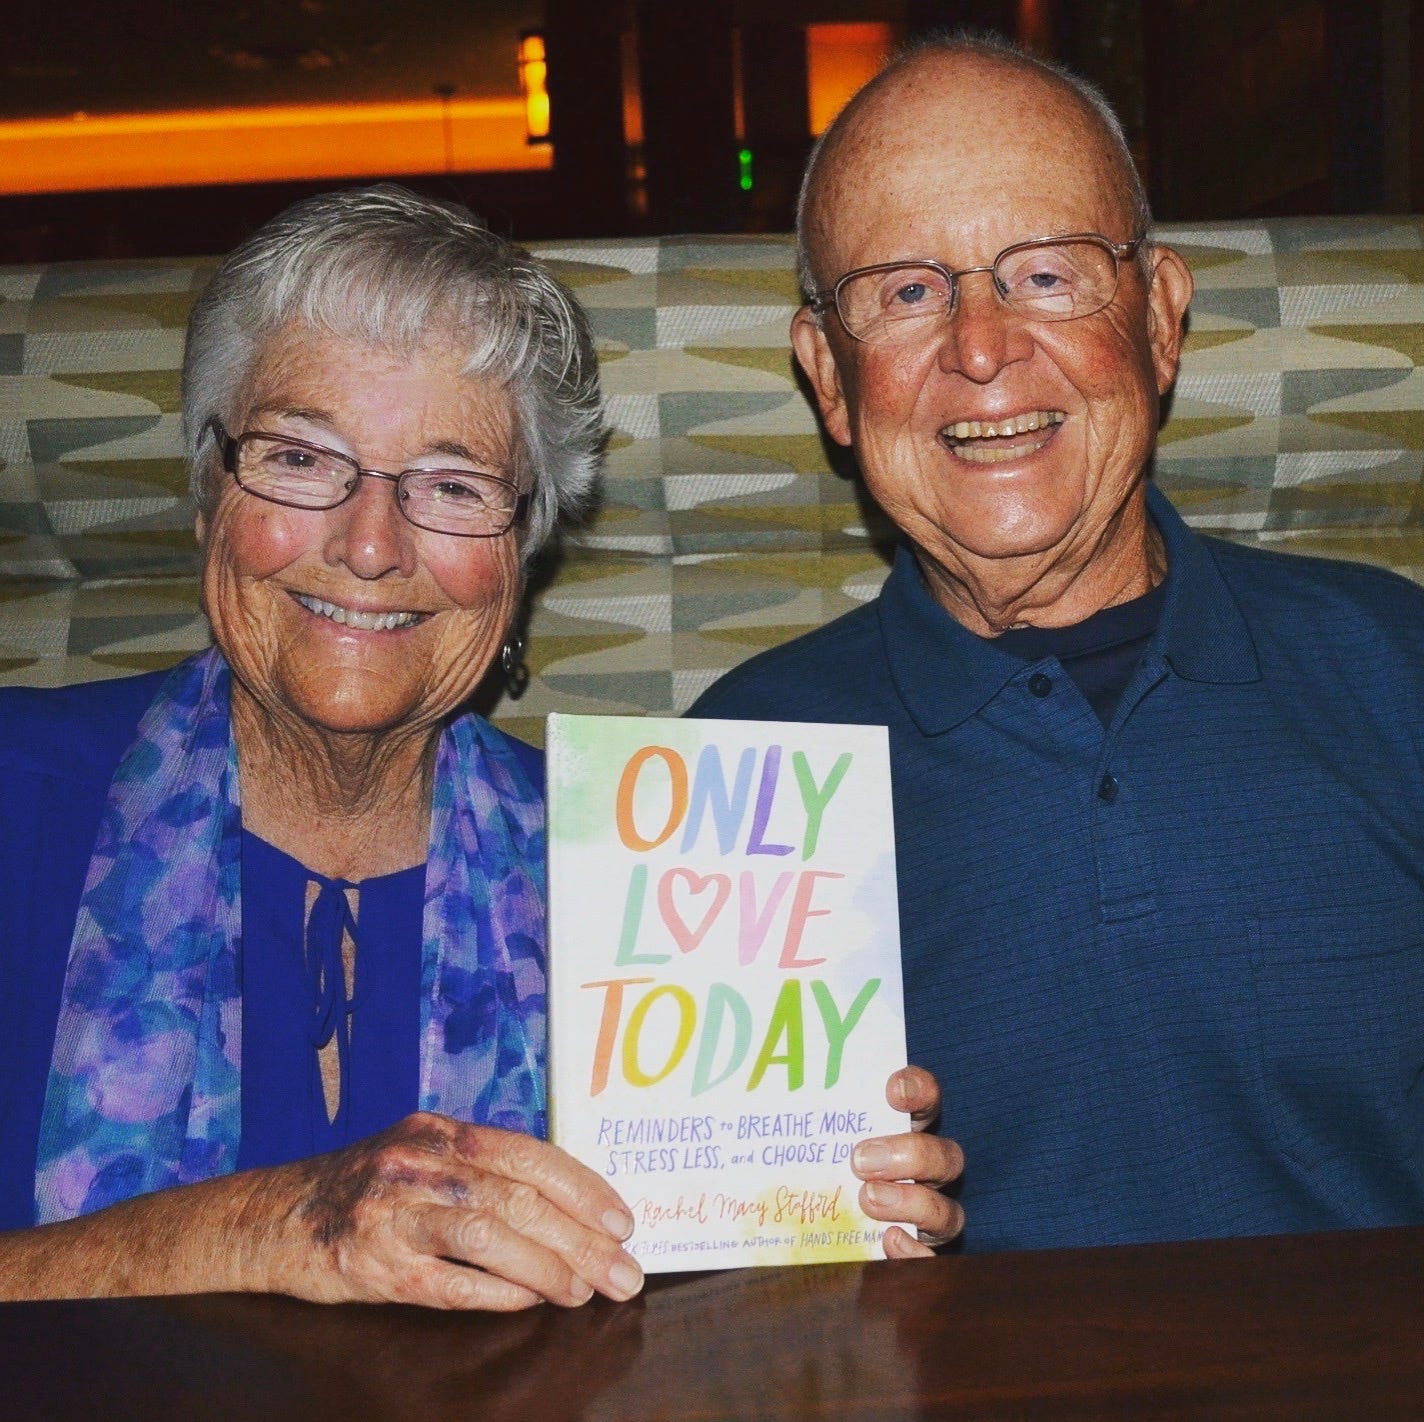 ONLY
LOVE
TODAY
REMINDERS to BREATHE MORE,
STRESS LESS, and CHOOSE
Rachel Macy Stafford
BESTSELLING AUTHOR OF HANDS FREE